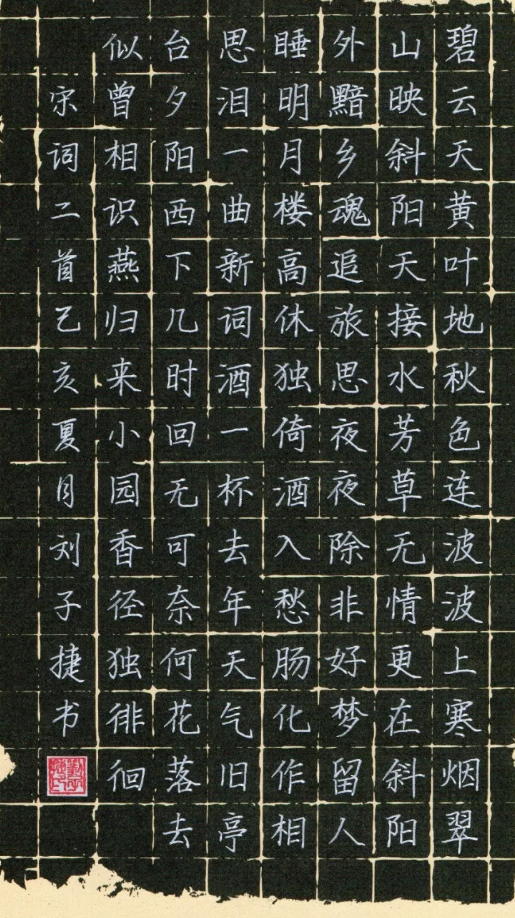 碧云天黄叶地秋色连波波上寒烟翠
山映斜阳天接水芳草无情更在斜阳
外黯乡魂追旅思夜夜除非好梦留人
睡明月楼高休独倚酒入愁肠化作相
思泪一曲新词酒一杯去年天气旧亭
台夕阳西下几时回无可奈何花落去
似曾相识燕归来小园香径独徘徊
宋词二首己亥夏月刘子捷书